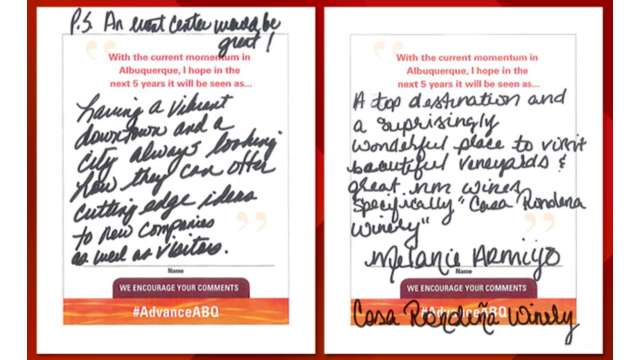 P.S. An event center would be
great!
With the current momentum in
Albuquerque, I hope in the
next 5 years it will be seen as...
having a vibrant
downtown and a
city always looking
how they can offer
cutting edge ideas
to new companies
as well as visitors.
Name
WE ENCOURAGE YOUR COMMENTS
#AdvanceABQ
With the current momentum in
Albuquerque, I hope in the
next 5 years it will be seen as...
A top destination and
a suprisingly
wonderful place to visit
beautiful veneyards &
great nm wines
Specifically "Casa Rondena
Winery"
Melanie Armijo
Name
WE ENCOURAGE YOUR COMMENTS
#AdvanceABQ
Casa Rondeña Winery